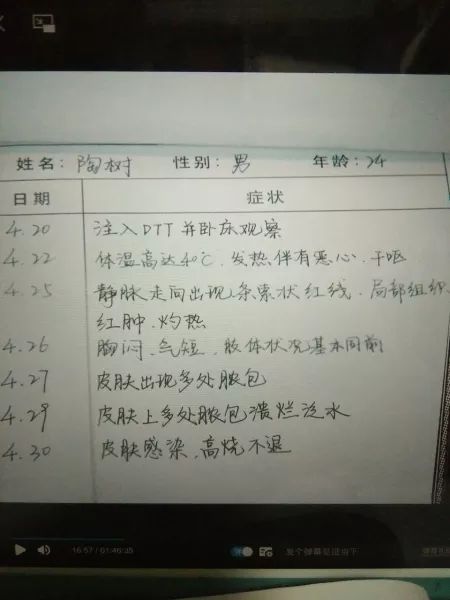 姓名：陶树 性别：男 年龄：24
日期 症状
4.20 注入DTT并卧床观察
4.22 体温高达40℃，发热伴有恶心、干呕
4.25 静脉走向出现条索状红线、局部组织
红肿、灼热
4.26 胸闷、气短，肢体状况基本同前
4.27 皮肤出现多处脓包
4.29 皮肤上多处脓包溃烂泛水
4.30 皮肤感染、高烧不退
16:57/01:46:35
弹 发个弹幕见证当下